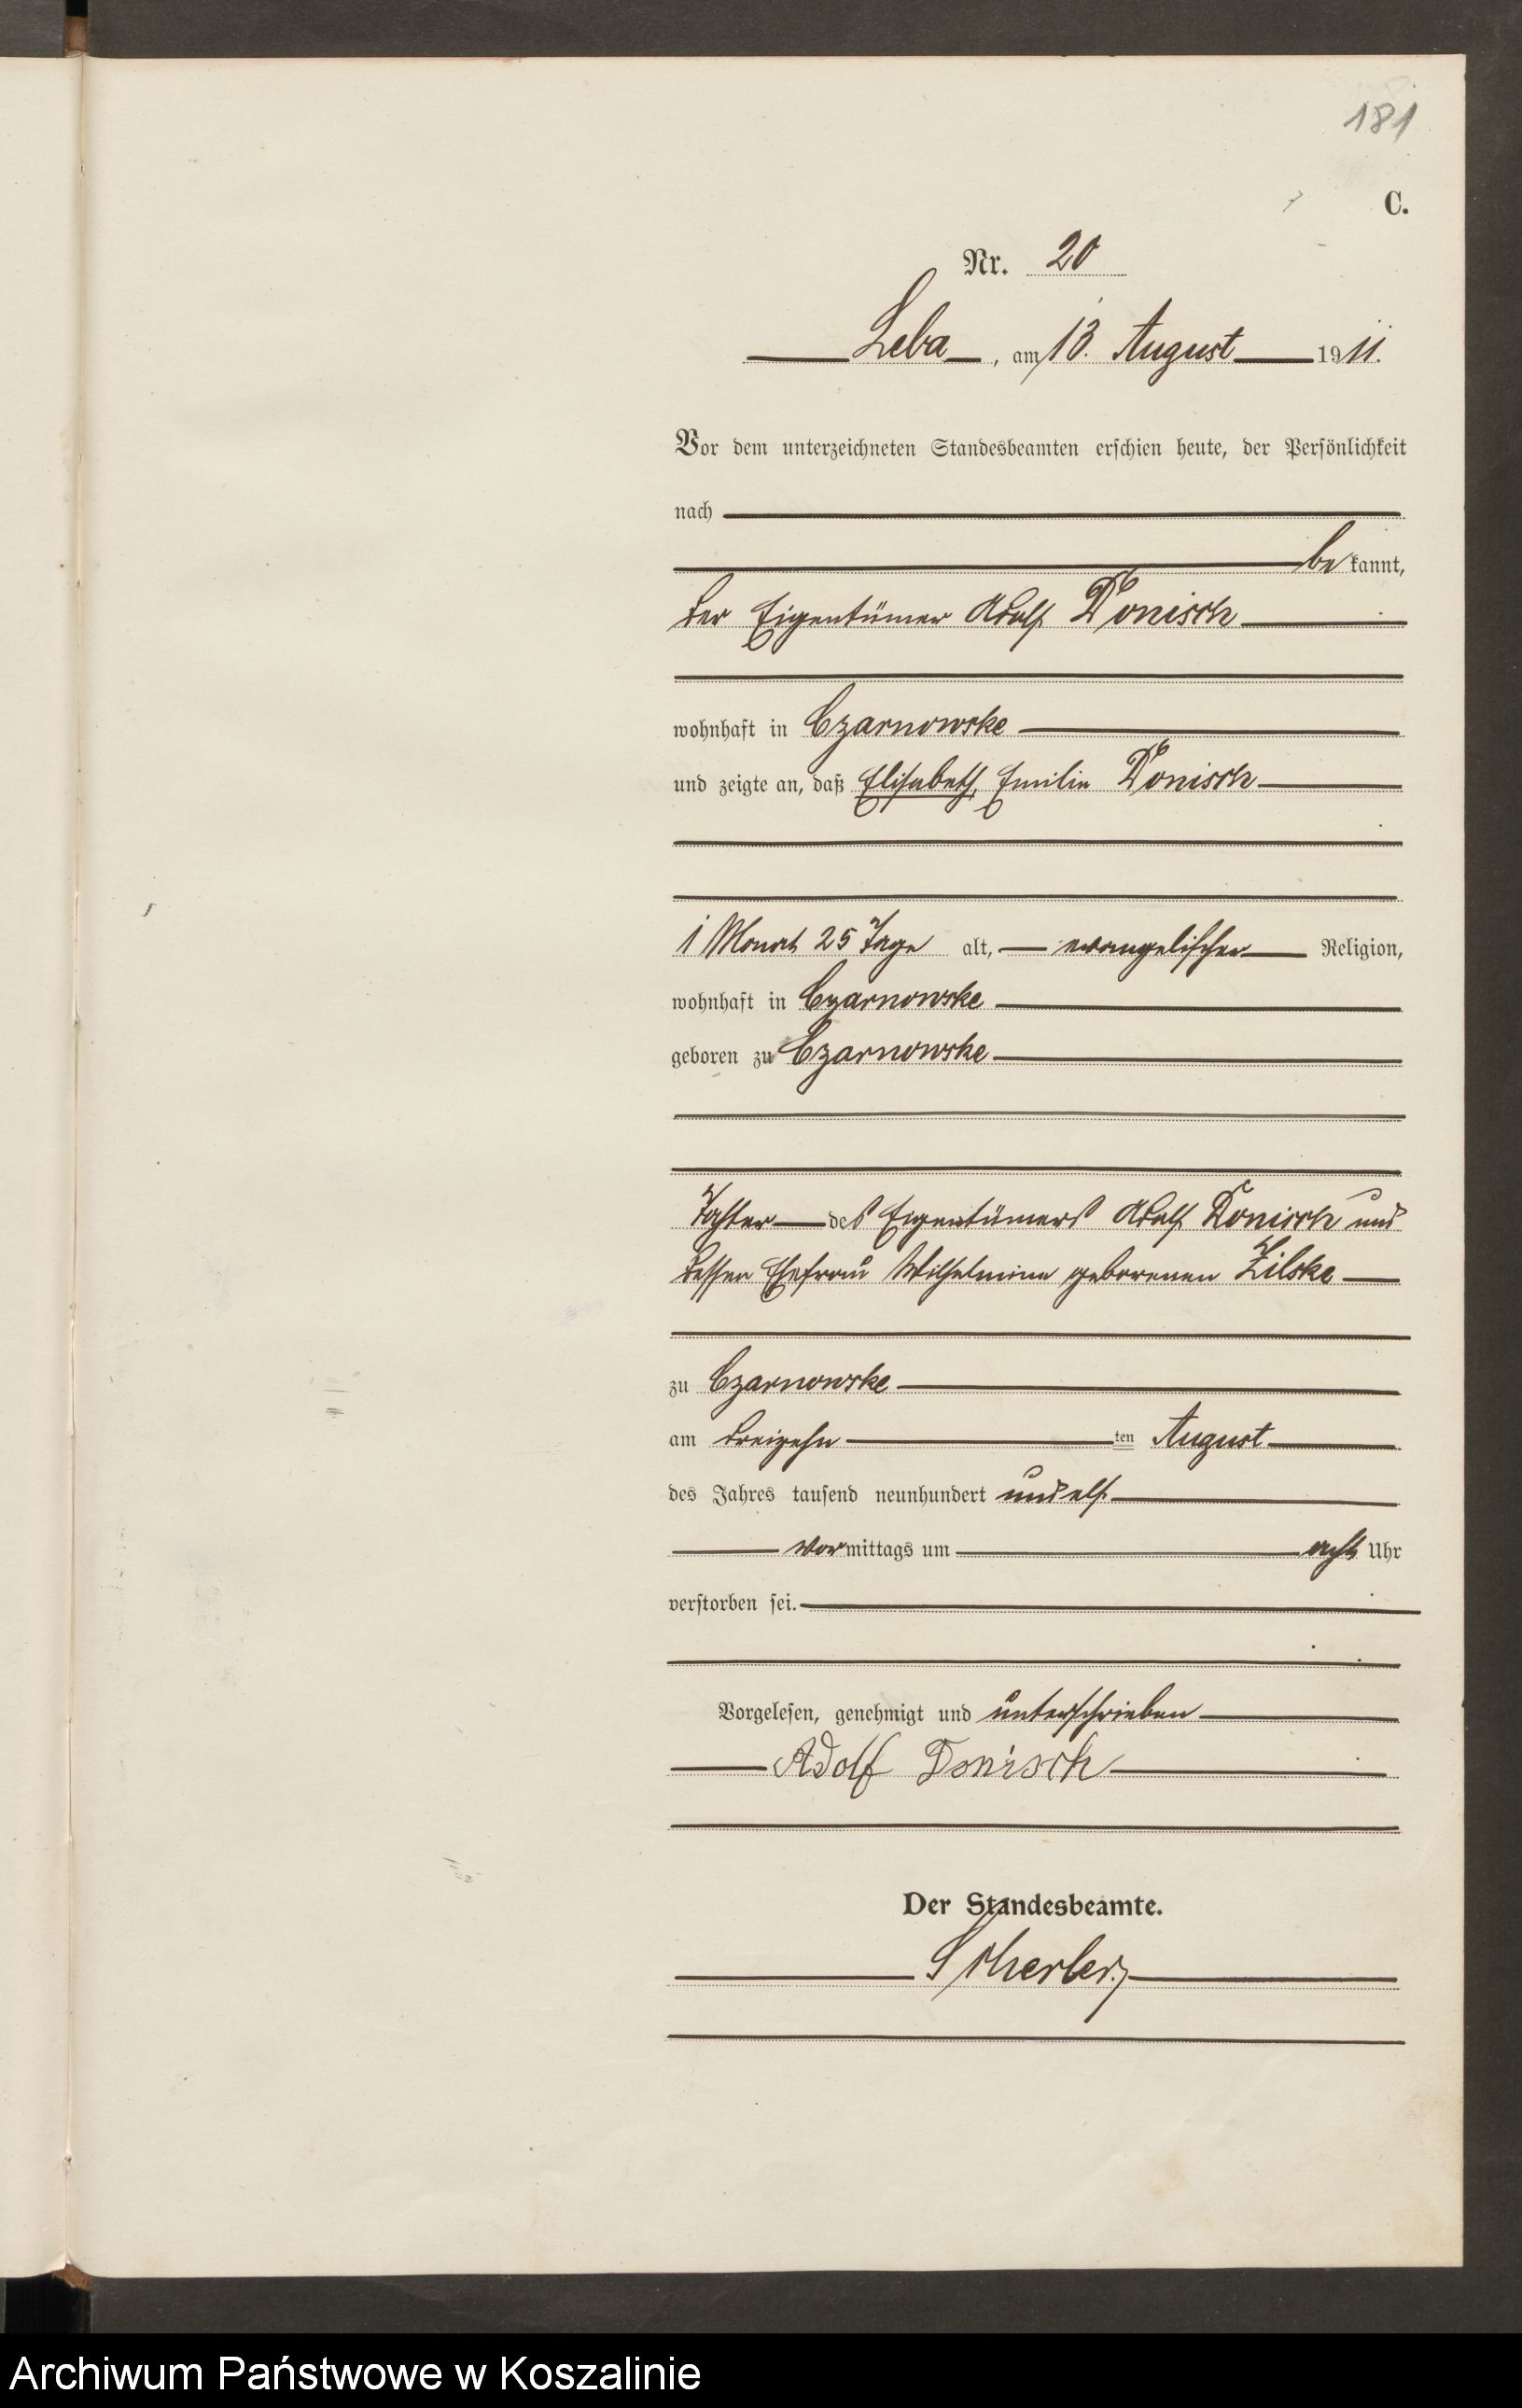 181
C.
Nr. 20
Leba, am 13. August 1911.
Vor dem unterzeichneten Standesbeamten erschien heute, der Persönlichkeit
nach
be kannt,
der Eigentümer Adolf Donisch
wohnhaft in Czarnowske
und zeigte an, daß Elisabeth, Emilie Donisch
1 Monat 25 Tage alt, evangelischer Religion,
wohnhaft in Czarnowske
geboren zu Czarnowske
Tochter des Eigentümers Adolf Donisch und
dessen Ehefrau Wilhelmine geborenen Zilske
zu Czarnowske
am dreizehn ten August
des Jahres tausend neunhundert und elf
vormittags um acht Uhr
verstorben sei.
Vorgelesen, genehmigt und unterschrieben
Adolf Donisch
Der Standesbeamte.
Archiwum Państwowe w Koszalinie